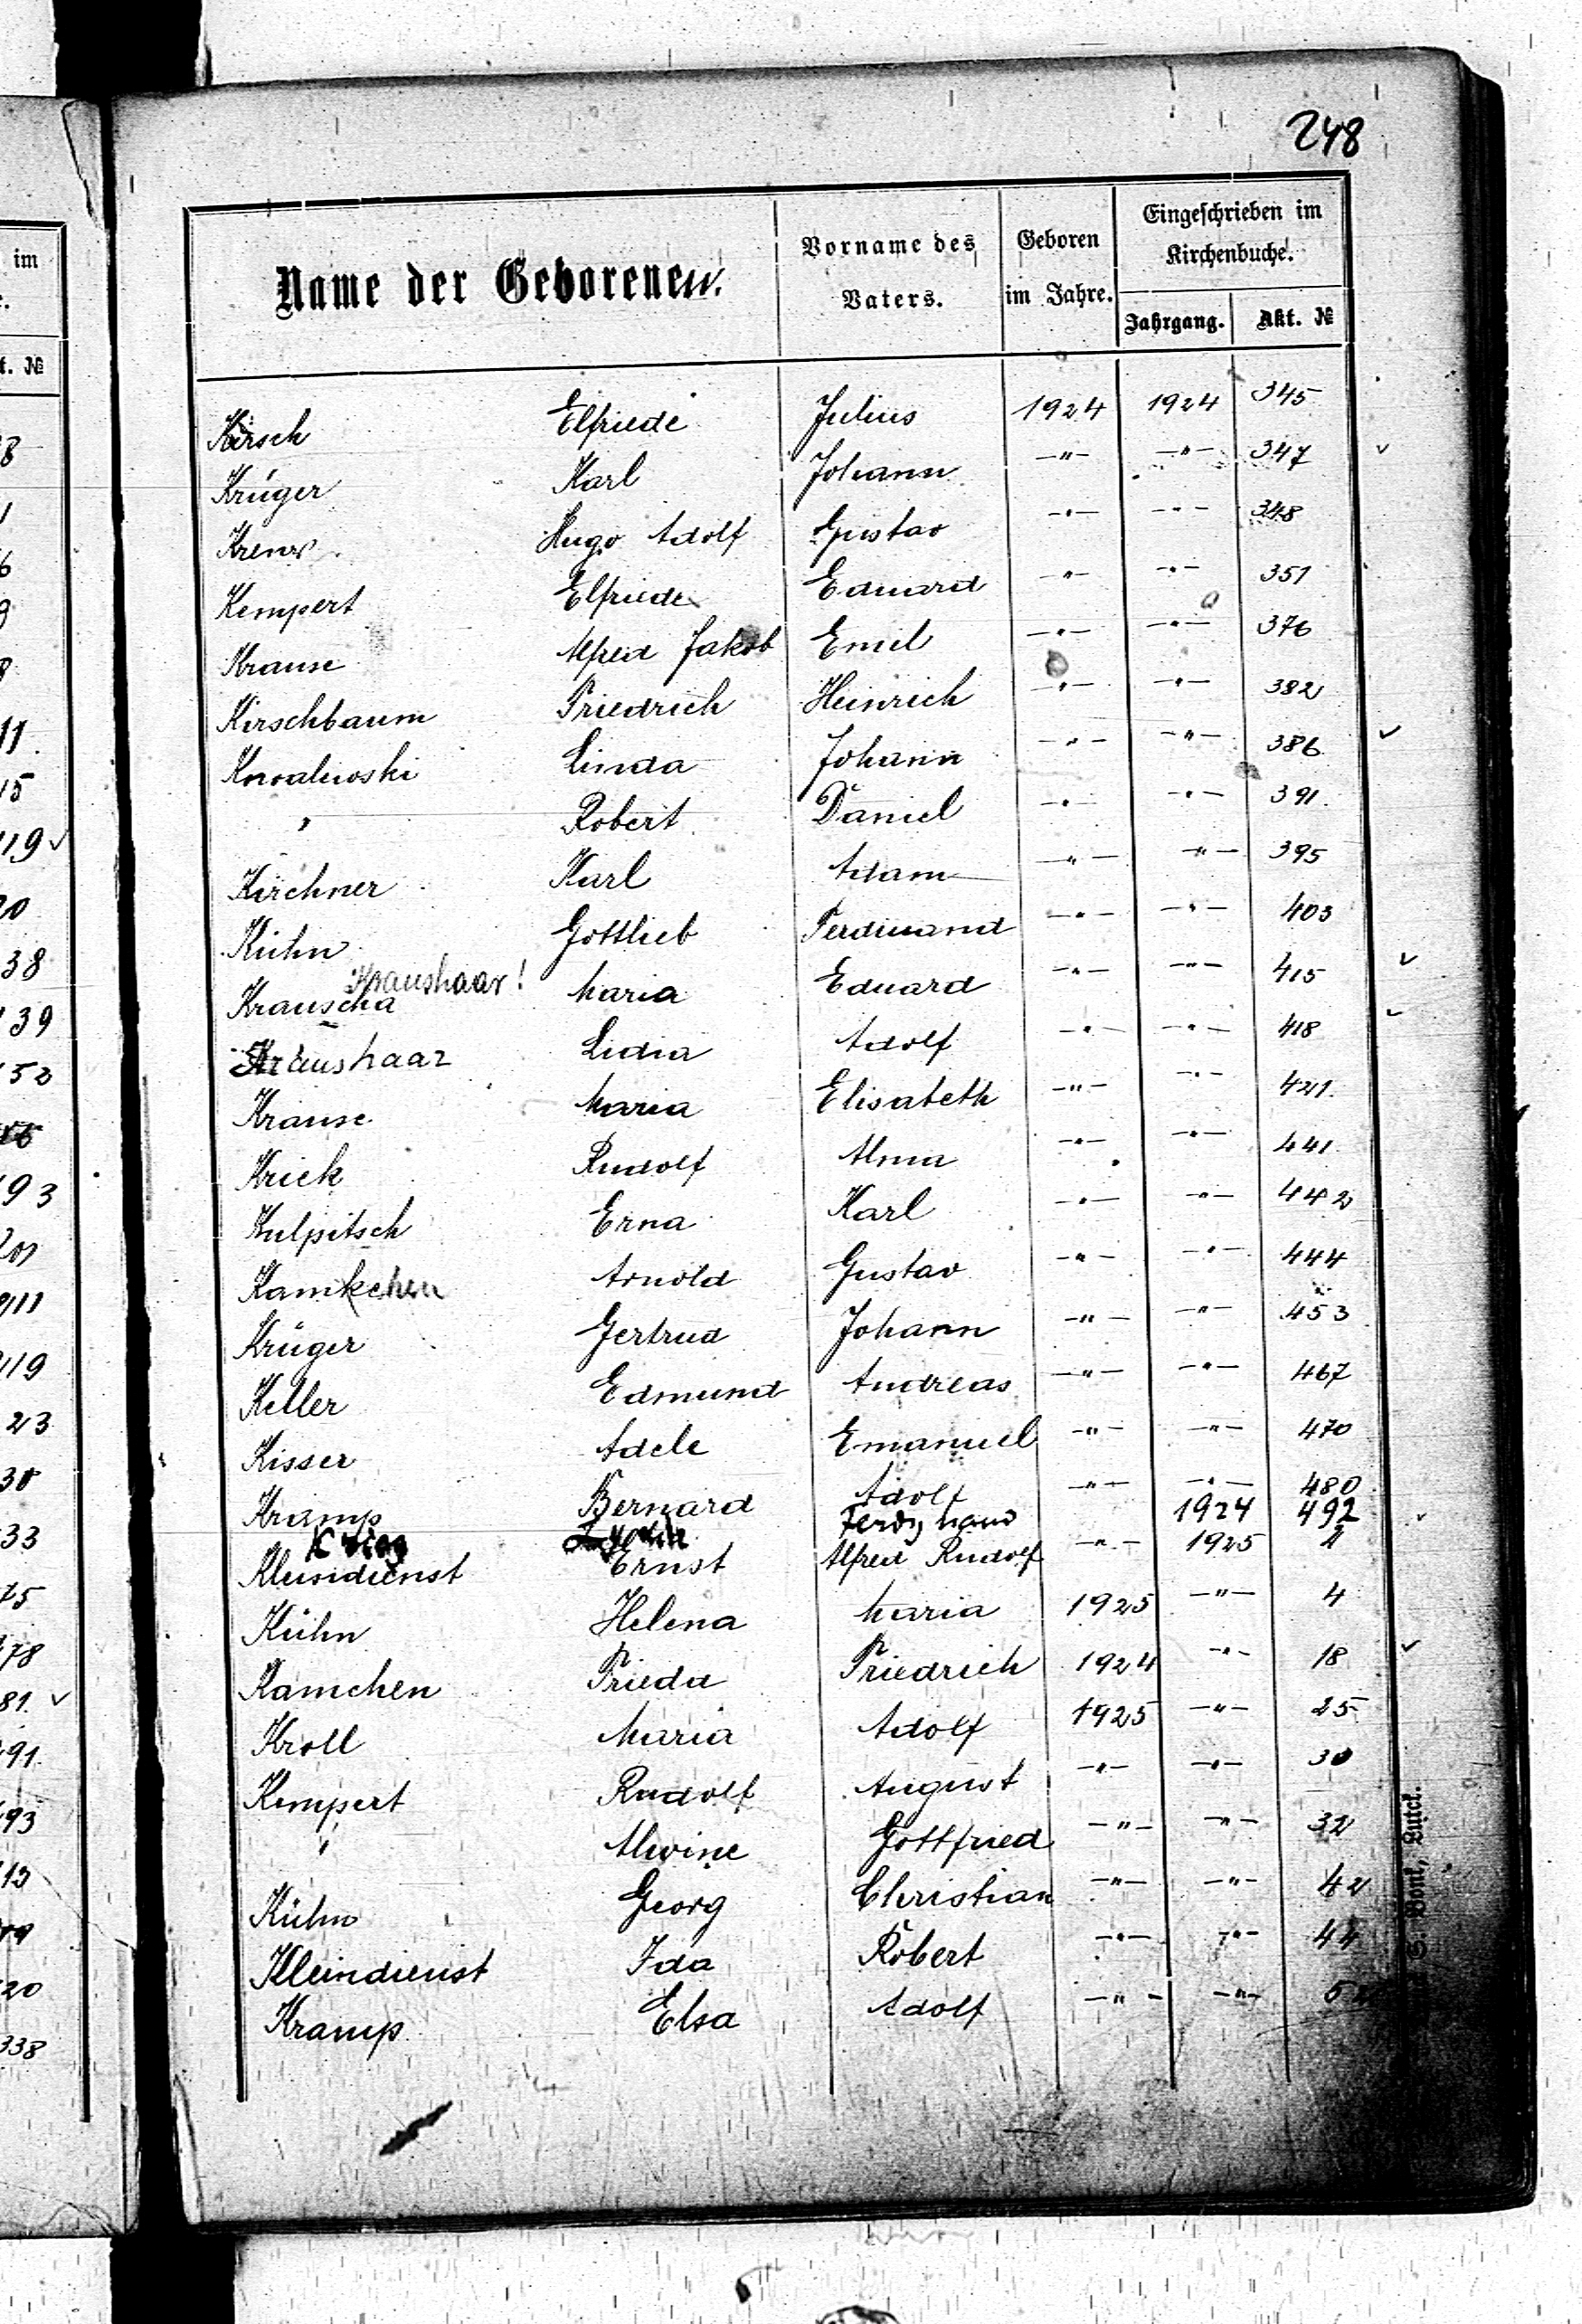 248
Name der Geborenen.
Vorname des Vaters.
Geboren im Jahre.
Eingeschrieben im Kirchenbuche.
Jahrgang. Akt. №
Kirsch Elfriede Julius 1924 1924 345
Krüger Karl Johann -"- -"- 347 ✓
Krenz Hugo Adolf Gustav -"- -"- 348
Kempert Elfriede Eduard -"- -"- 351
Krause Alfred Jakob Emil -"- -"- 376
Kirschbaum Friedrich Heinrich -"- -"- 382
Kowalewski Linda Johann -"- -"- 386 ✓
" Robert Daniel -"- -"- 391.
Kirchner Karl Adam -"- -"- 395
Kühn Gottlieb Ferdinand -"- -"- 403
Kraushaar!
Krauscha Maria Eduard -"- -"- 415 ✓
Kraushaar Lidia Adolf -"- -"- 418 ✓
Krause Maria Elisabeth -"- -"- 421.
Kriek Rudolf Alma -"- -"- 441
Kulpitsch Erna Karl -"- -"- 442
Kamkchen Arnold Gustav -"- -"- 444
Krüger Gertrud Johann -"- -"- 453
Keller Edmund Andreas -"- -"- 467
Kisser Adele Emanuel -"- -"- 470
Kramp Bernard Adolf -"- -"- 480
Krieg Ferdinand 1924 492 ✓
Kleindienst Ernst Alfred Rudolf -"- 1925 2
Kühn Helena Maria 1925 -"- 4
Kamchen Frieda Friedrich 1924 -"- 18 ✓
Kroll Maria Adolf 1925 -"- 25
Kempert Rudolf August -"- -"- 30
" Alwine Gottfried -"- -"- 32
Kühn Georg Christian -"- -"- 42
Kleindienst Ida Robert -"- -"- 44
Kramp Elsa Adolf -"- -"-
im
t. №
11.
15
119 ✓
20
38
139
152
193
111
119
23
33
75
178
81. ✓
191.
193
13
20
338